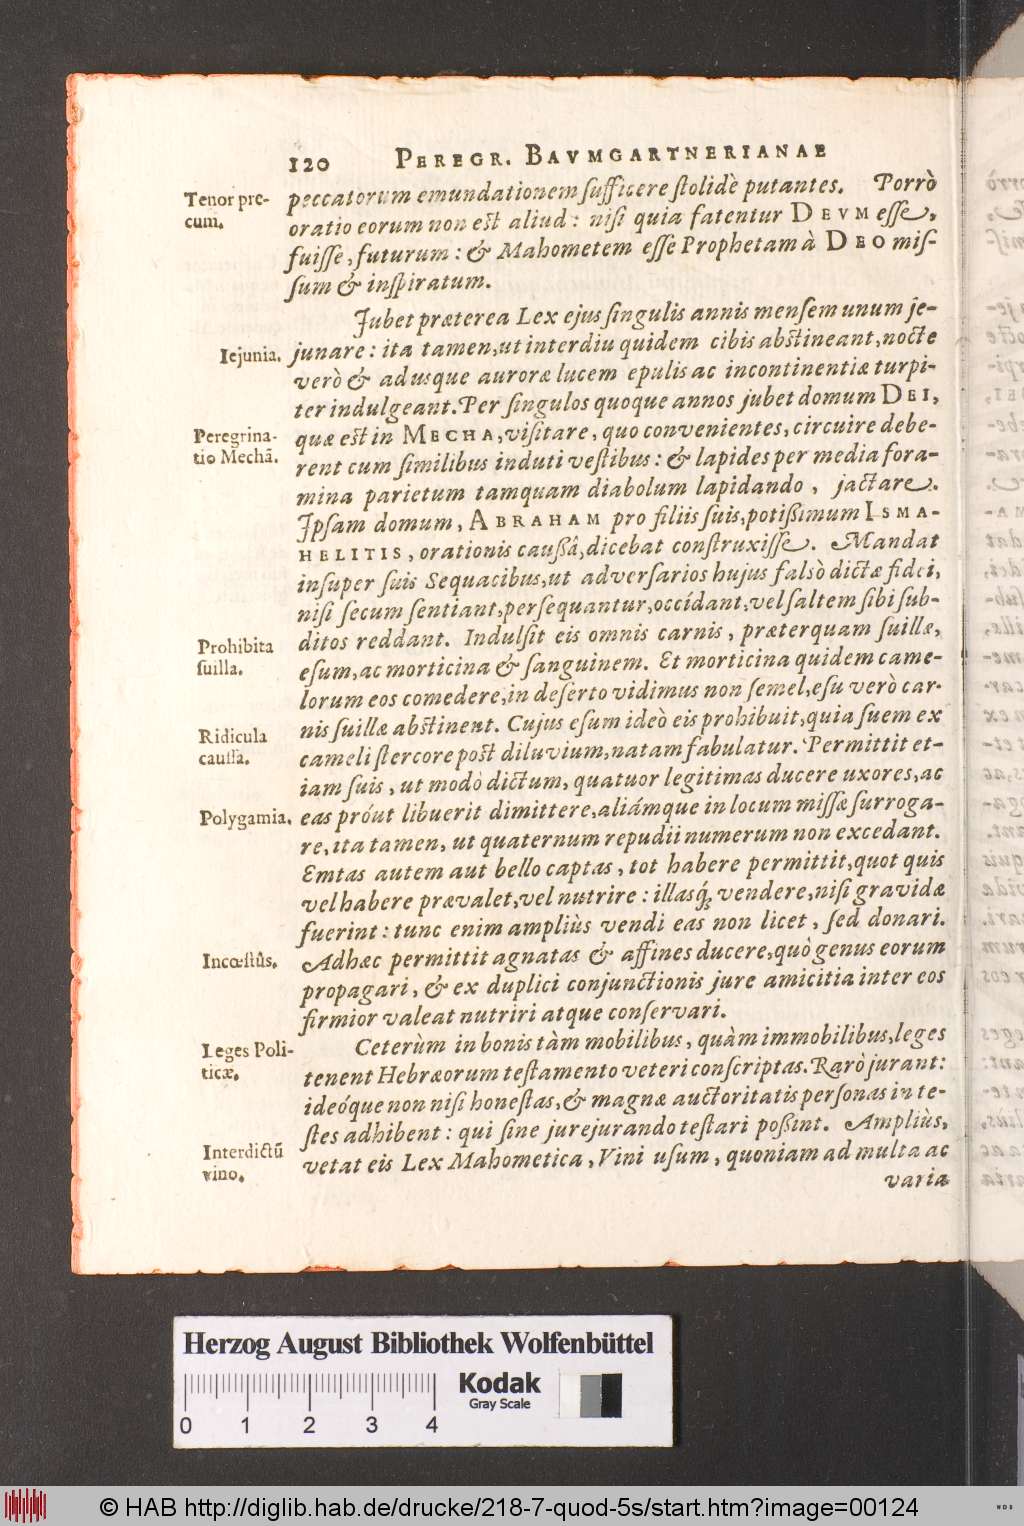 120 PEREGR. BAVMGARTNERIANAE
Tenor pre-
cum.
peccatorum emundationem ſufficere ſtolidè putantes. Porrò
oratio eorum non eſt aliud: niſi quia fatentur DEVM eſſe,
fuiſſe, futurum: & Mahometem eſſe Prophetam à DEO miſ-
ſum & inſpiratum.
Jubet præterea Lex ejus ſingulis annis menſem unum je-
Iejunia.
junare: ita tamen, ut interdiu quidem cibis abſtineant, nocte
verò & adusque auroræ lucem epulis ac incontinentiæ turpi-
ter indulgeant. Per ſingulos quoque annos jubet domum DEI,
Peregrina-
tio Mechã.
quæ eſt in MECHA, viſitare, quo convenientes, circuire debe-
rent cum ſimilibus induti veſtibus: & lapides per media fora-
mina parietum tamquam diabolum lapidando, jactare.
Ipſam domum, ABRAHAM pro filiis ſuis, potißimum ISMA-
HELITIS, orationis caußâ, dicebat conſtruxiſſe. Mandat
inſuper ſuis Sequacibus, ut adverſarios hujus falsò dictæ fidei,
niſi ſecum ſentiant, perſequantur, occídant, vel ſaltem ſibi ſub-
Prohibita
ſuilla.
ditos reddant. Indulſit eis omnis carnis, præterquam ſuillæ,
eſum, ac morticina & ſanguinem. Et morticina quidem came-
lorum eos comedere, in deſerto vidimus non ſemel, eſu verò car-
Ridicula
cauſſa.
nis ſuillæ abſtinent. Cujus eſum ideò eis prohibuit, quia ſuem ex
cameli ſtercore poſt diluvium, natam fabulatur. Permittit et-
iam ſuis, ut modò dictum, quatuor legitimas ducere uxores, ac
Polygamia.
eas próut libuerit dimittere, aliámque in locum miſſæ ſurroga-
re, ita tamen, ut quaternum repudii numerum non excedant.
Emtas autem aut bello captas, tot habere permittit, quot quis
vel habere prævalet, vel nutrire: illasq́; vendere, niſi gravidæ
fuerint: tunc enim ampliùs vendi eas non licet, ſed donari.
Incœſtûs.
Adhæc permittit agnatas & affines ducere, quò genus eorum
propagari, & ex duplici conjunctionis jure amicitia inter eos
firmior valeat nutriri atque conſervari.
Leges Poli-
ticæ.
Ceterùm in bonis tàm mobilibus, quàm immobilibus, leges
tenent Hebræorum teſtamento veteri conſcriptas. Rarò jurant:
ideóque non niſi honeſtas, & magnæ auctoritatis perſonas in te-
ſtes adhibent: qui ſine jurejurando teſtari poßint. Ampliùs,
Interdictũ
vino.
vetat eis Lex Mahometica, Vini uſum, quoniam ad multa ac
varia
Herzog August Bibliothek Wolfenbüttel
0 1 2 3 4
Kodak
Gray Scale
© HAB http://diglib.hab.de/drucke/218-7-quod-5s/start.htm?image=00124